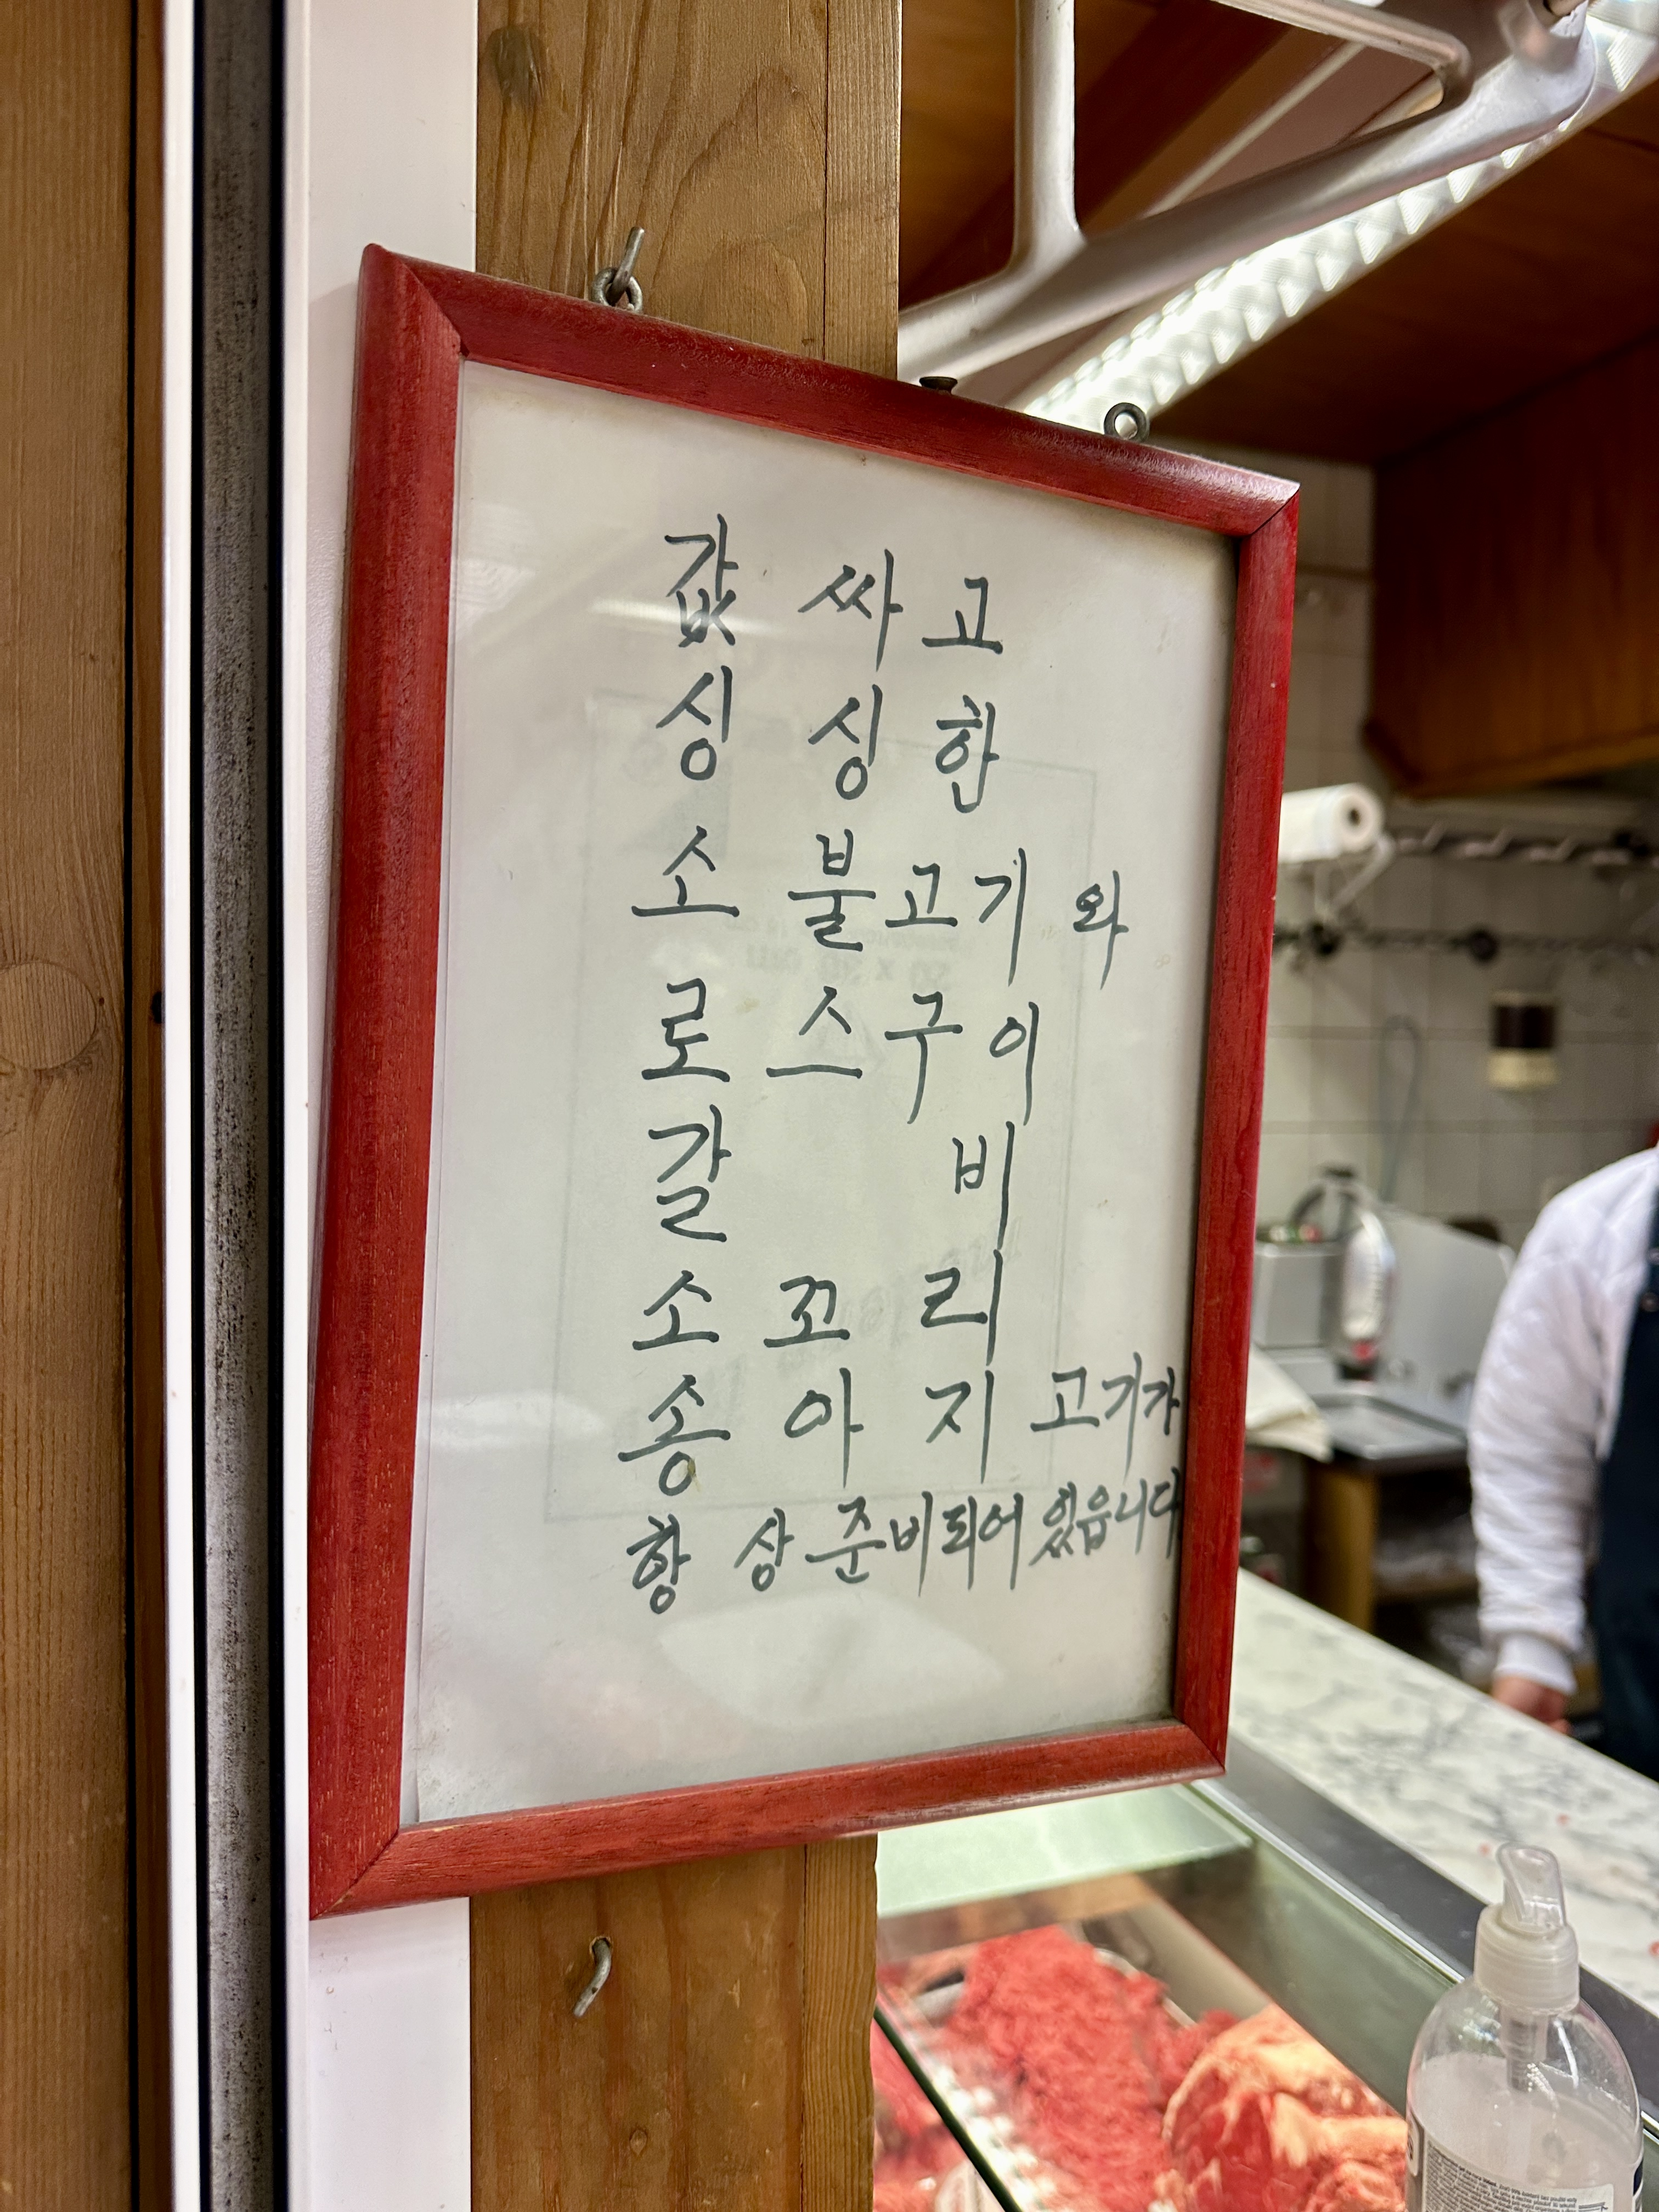 값 싸고
싱 싱한
소 불고기 와
로 스구이
갈 비
소 꼬 리
송 아 지 고기가
항 상 준비되어 있읍니다